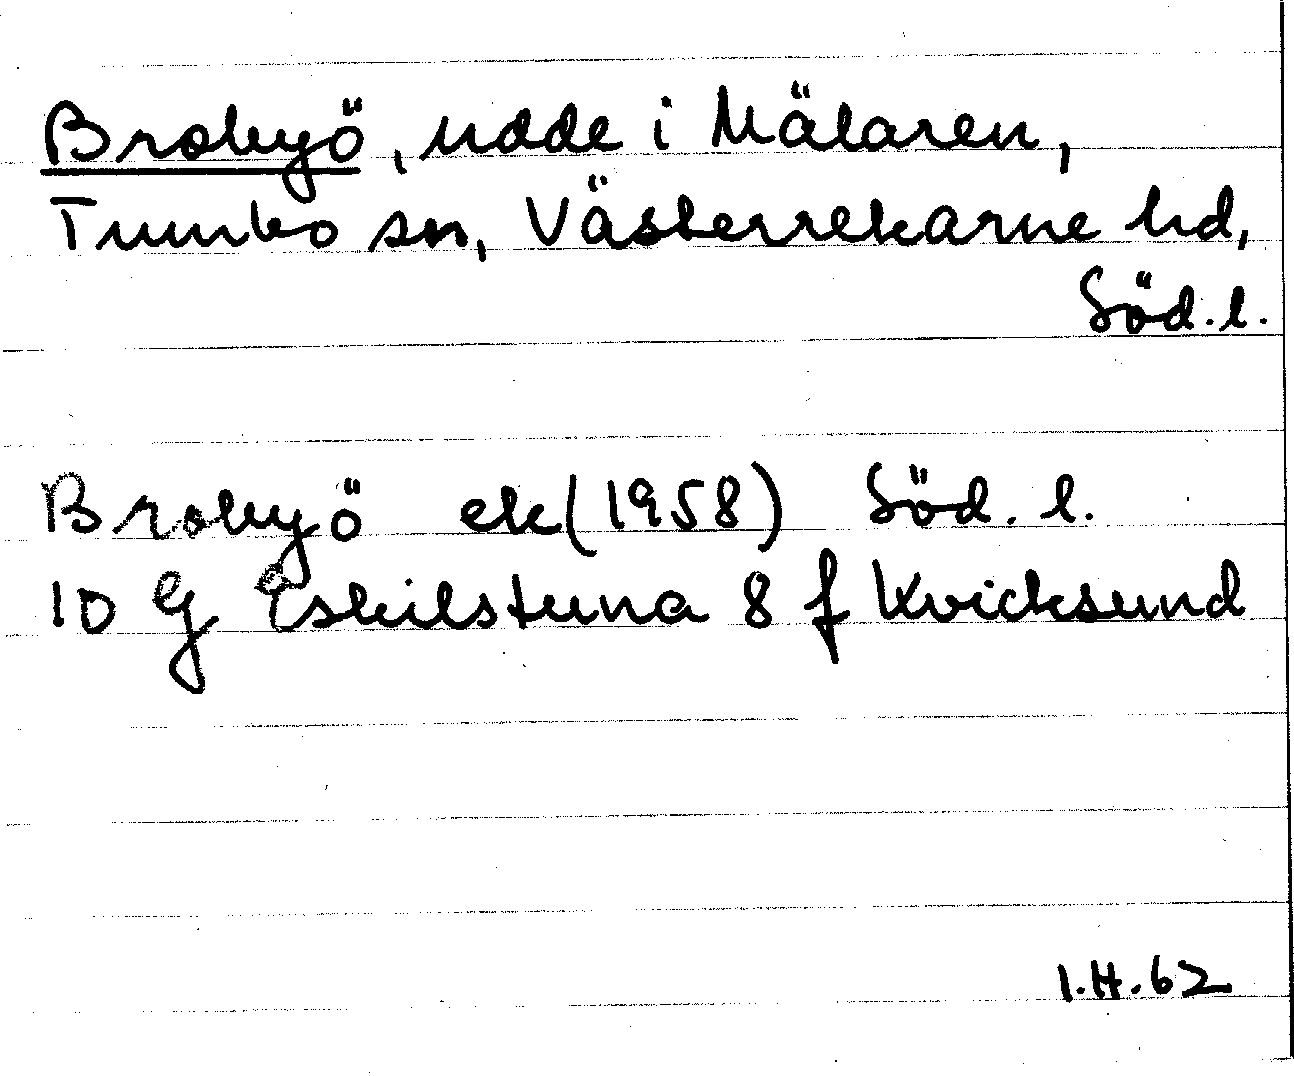 Brobyö, udde i Mälaren,
Tumbo sn, Västerrekarne hd,
Söd.l.
Brobyö ek (1958) Söd. l.
10 G Eskilstuna 8 f Kvicksund
I.H.62